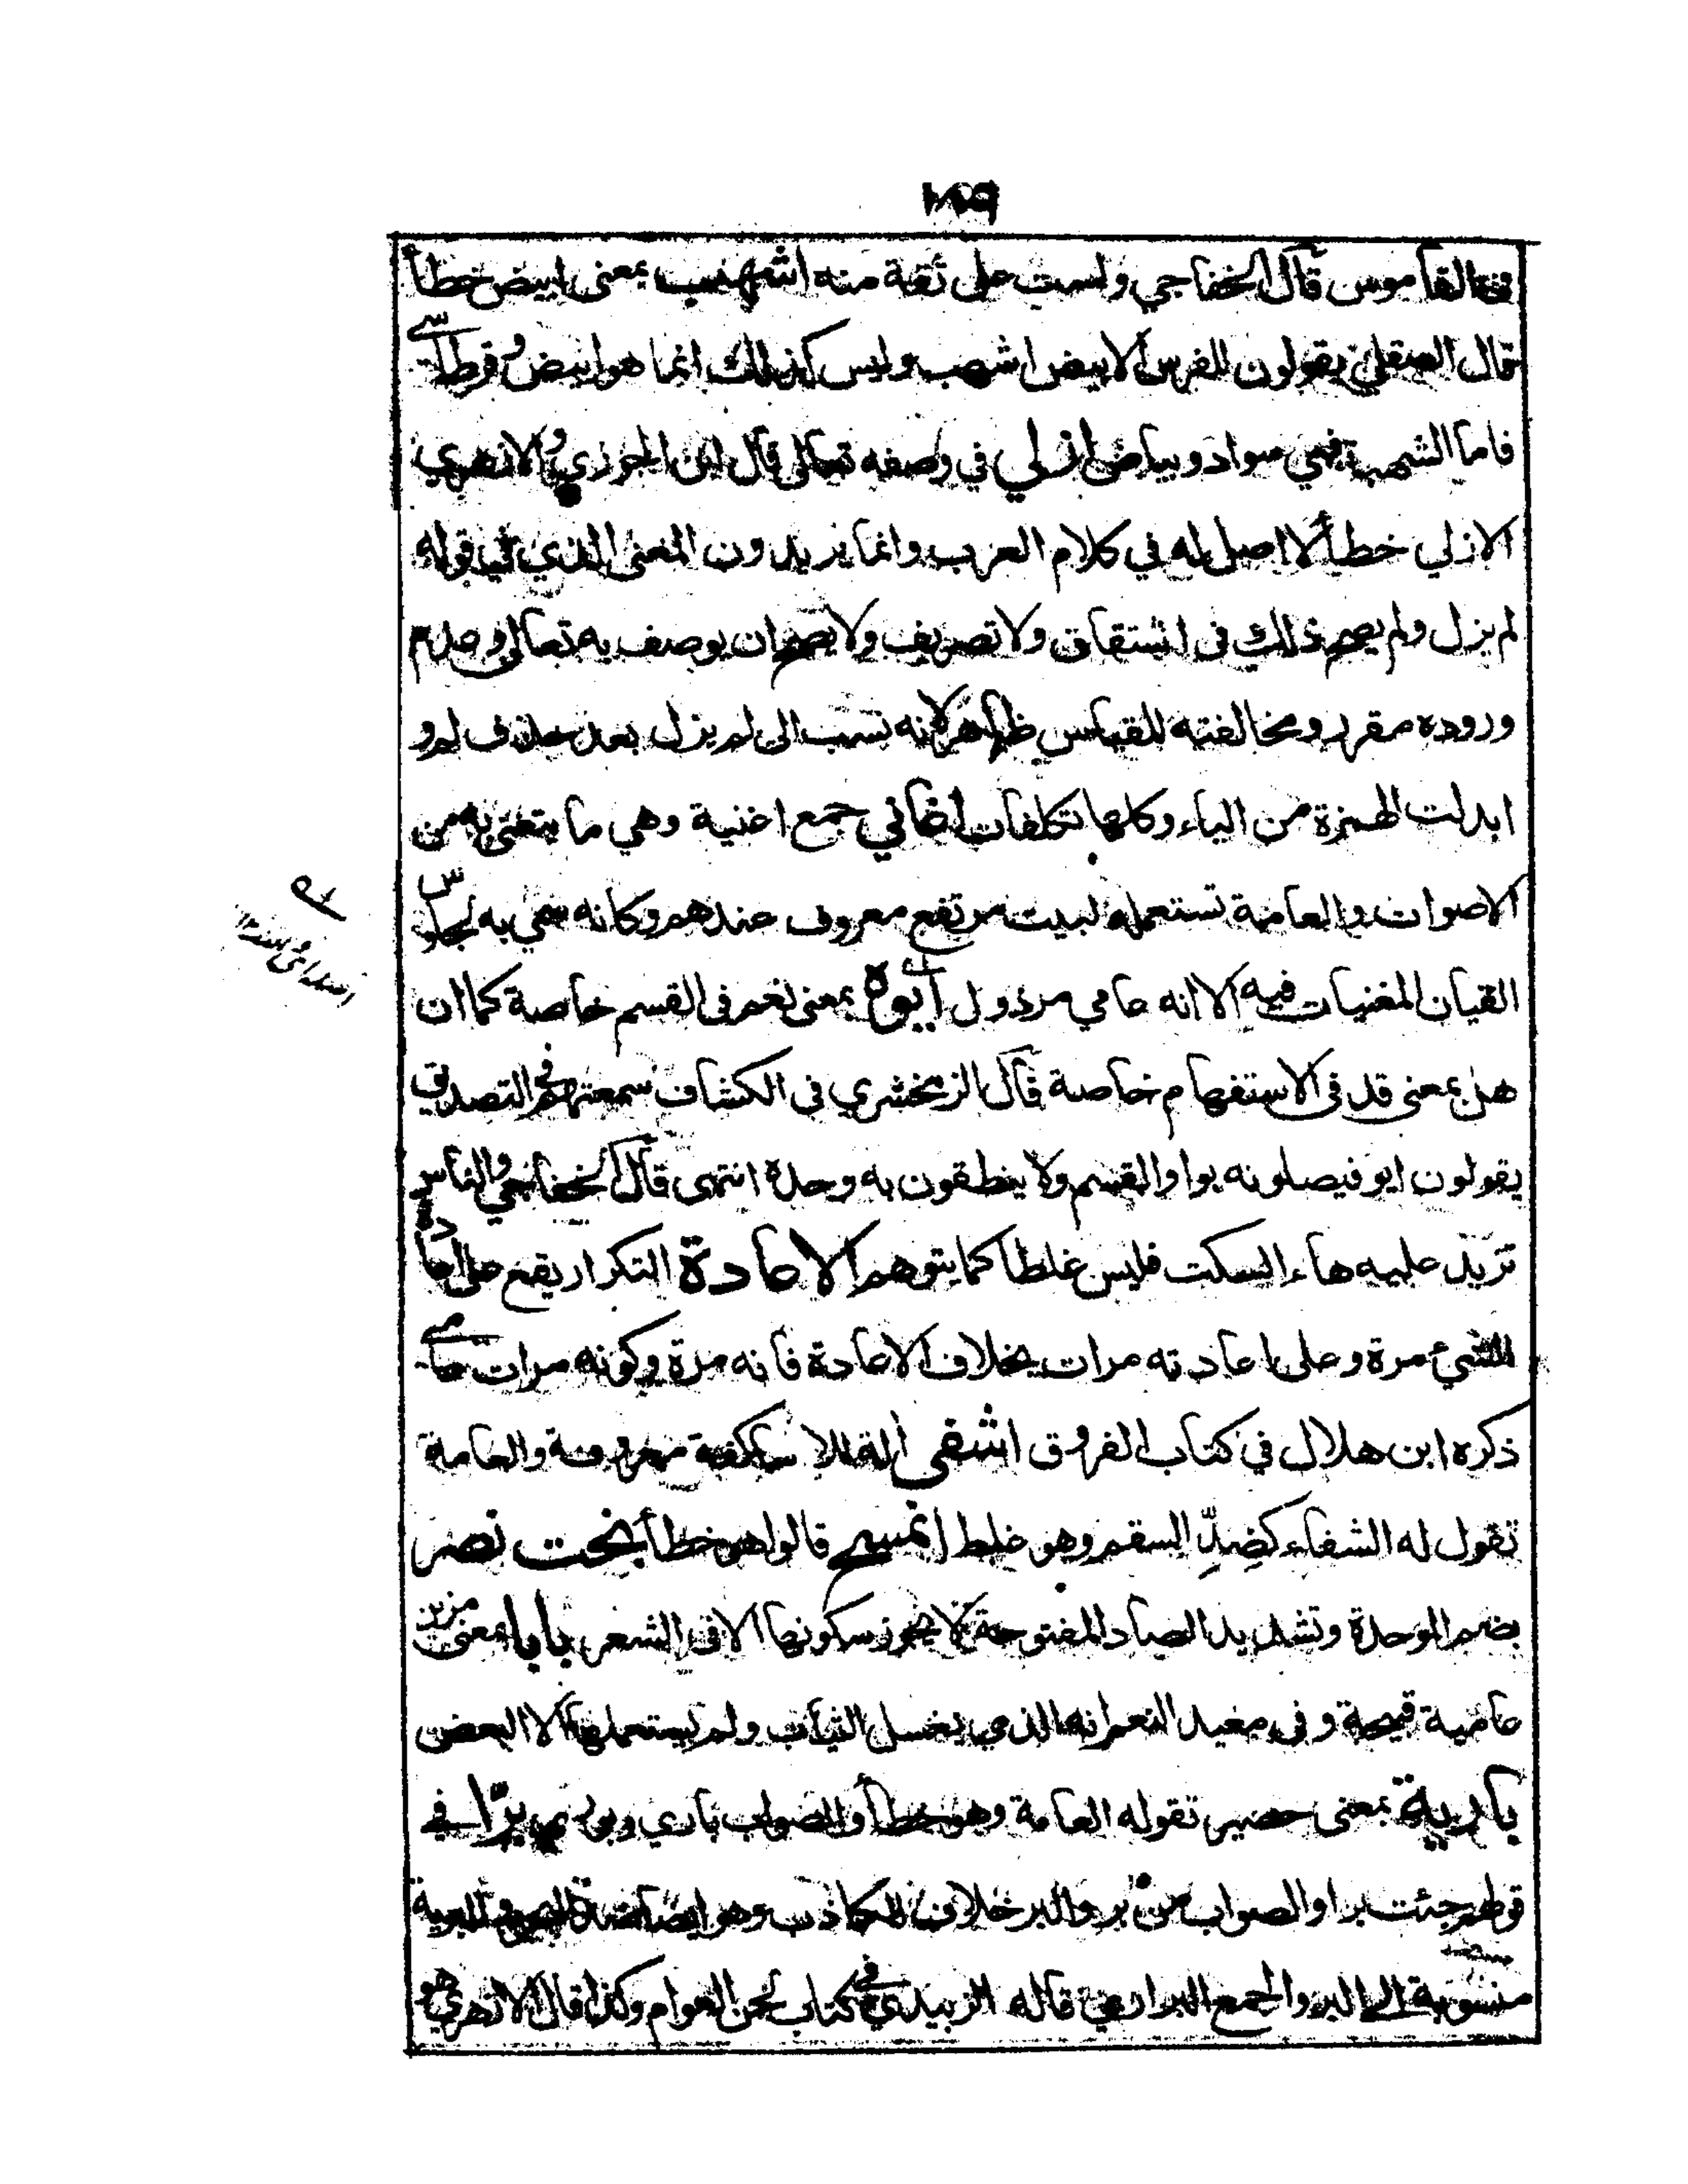 ١٨٩
في القاموس قال الخفاجي ولست على ثقة منه اشهب بمعنى ابيض خطأ
قال الصقلي يقولون للفرس الابيض اشهب وليس كذلك انما هو ابيض وقرطاسي
فاما الشهبة فهي سواد وبياض ازلي في وصفه تعالى قال ابن الجوزي والازهري
الازلي خطأ لا اصل له في كلام العرب وانما يريدون المعنى الذي في قوله
لم يزل ولم يصح ذلك في اشتقاق ولا تصريف ولا يصح ان يوصف به تعالى وعدم
وروده مقرر ومخالفته للقياس ظاهر لانه نسب الى لم يزل بعد حذف لم و
ابدلت الهمزة من الياء وكلها تكلفات اغاني جمع اغنية وهي ما يتغنى به من
الاصوات والعامة تستعمله لبيت مرتفع معروف عندهم وكانه سمي به لجلوس
القيان المغنيات فيه الا انه عامي مرذول ايوه بمعنى نعم في القسم خاصة كما ان
هل بمعنى قد في الاستفهام خاصة قال الزمخشري في الكشاف سمعتهم في التصديق
يقولون ايو فيصلونه بواو القسم ولا ينطقون به وحدة انتهى قال الخفاجي والناس
تزيد عليه هاء السكت فليس غلطا كما يتوهم الاعادة التكرار يقع على اعادة
الشيء مرة وعلى اعادته مرات بخلاف الاعادة فانه مرة وكونه مرات عامي
ذكره ابن هلال في كتاب الفروق اشفى الة للاساكفة معروفة والعامة
تقول له الشفاء كضد السقم وهو غلط اتمسح قالوا هو خطأ بخت نصر
بضم الموحدة وتشديد الصاد المفتوحة لا يجوز سكونها الا في الشعر بابا بمعنى مزين
عامية قبيحة وفي مغيد النعم انه الذي يغسل الثياب ولم يستعملها الا البعض
بارية بمعنى حصير تقوله العامة وهو خطأ والصواب باري وبوري برّا في
قولهم جئت برا والصواب من بر والبر خلاف الكن وهو ايضا ضد البحر والبرية
منسوبة الى البر والجمع البراري قاله الزبيدي في كتاب لحن العوام وكذا قال الازهري هو